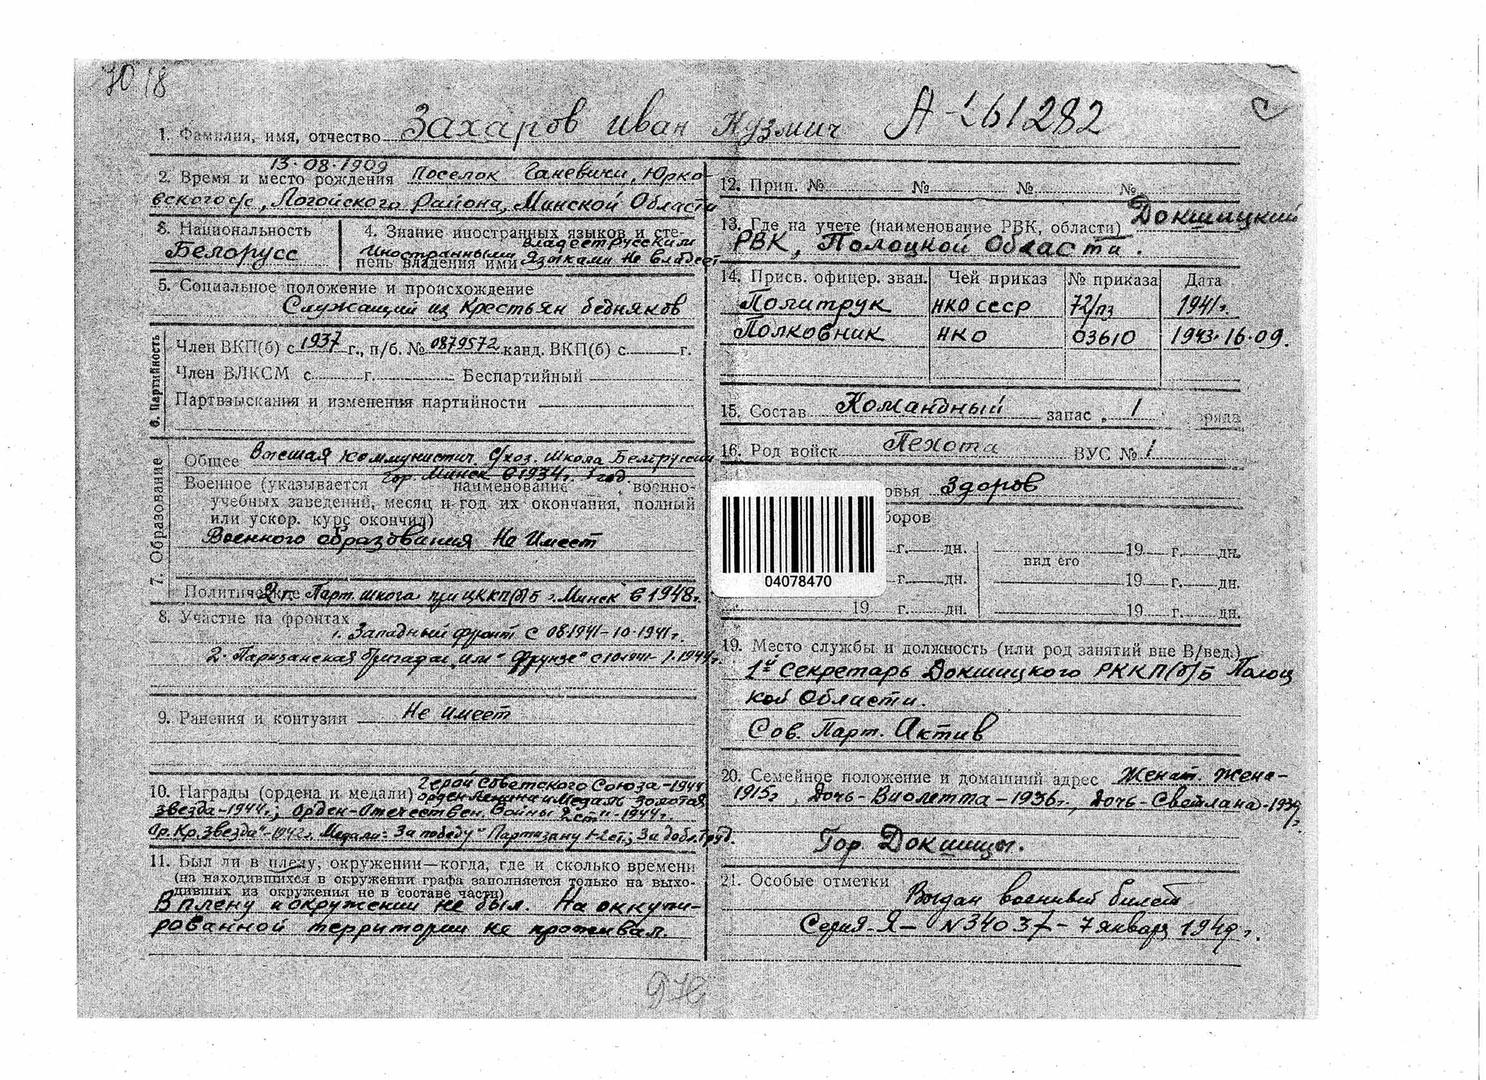 7018
1. Фамилия, имя, отчество Захаров Иван Кузмич А-261282
13.08.1909
2. Время и место рождения Поселок Ганевичи, Юрко-
вского с/с, Логойского Района, Минской Области
3. Национальность Белорусс
4. Знание иностранных языков и сте-
пень владения ими Владеет русским
Иностранными Языками Не Владеет
5. Социальное положение и происхождение
Служащий из Крестьян бедняков
6. Партийность
Член ВКП(б) с 1937 г., п/б. № 0879572 канд. ВКП(б) с г.
Член ВЛКСМ с г. Беспартийный
Партвзыскания и изменения партийности
7. Образование
Общее Высшая Коммунистич. С/хоз. Школа Белоруссии
гор. Минск в 1934г. 1 год
Военное (указывается наименование военно-
учебных заведений, месяц и год их окончания, полный
или ускор. курс окончил)
Военного образования Не Имеет
Политическое Парт. школа при ЦККП(б)Б г. Минск в 1948г.
8. Участие на фронтах
1. Западный фронт с 08.1941-10.1941г.
2. Паризанская бригада им "Фрунзе"
9. Ранения и контузии Не имеет
10. Награды (ордена и медали) Герой Советского Союза-1944
орден Ленина и Медаль Золотая
звезда-1944г.; Орден-Отечествен. Войны 2 ст"-1944г.
Ор. Кр. звезда"-1942г. Медали: За победу" Партизану За добл. труд.
11. Был ли в плену, окружении—когда, где и сколько времени
(на находившихся в окружении графа заполняется только на выхо-
дивших из окружения не в составе части)
В плену и окружении не был. На оккупи-
рованной территории не проживал.
12. Прип. № № № №
13. Где на учете (наименование РВК, области) Докшицкий
РВК, Полоцкой Области.
14. Присв. офицер. зван. Чей приказ № приказа Дата
Политрук НКО СССР 72/пз 1941г.
Полковник НКО 03610 1943.16.09.
15. Состав Командный запас 1 ряда
16. Род войск Пехота ВУС № 1
овья Здоров
боров
г. дн. 19 г. дн.
вид его
г. дн. 19 г. дн.
19 г. дн. 19 г. дн.
04078470
19. Место службы и должность (или род занятий вне В/вед.)
1й Секретарь Докшицкого РККП(б)Б Полоц
кой Области.
Сов. Парт. Актив
20. Семейное положение и домашний адрес Женат. Жена-
1915г, Дочь-Виолетта-1936г, Дочь-Светлана-1939
г.
Гор. Докшицы.
21. Особые отметки Выдан военный билет
Серия-Я- N34037-7 января 1949г.